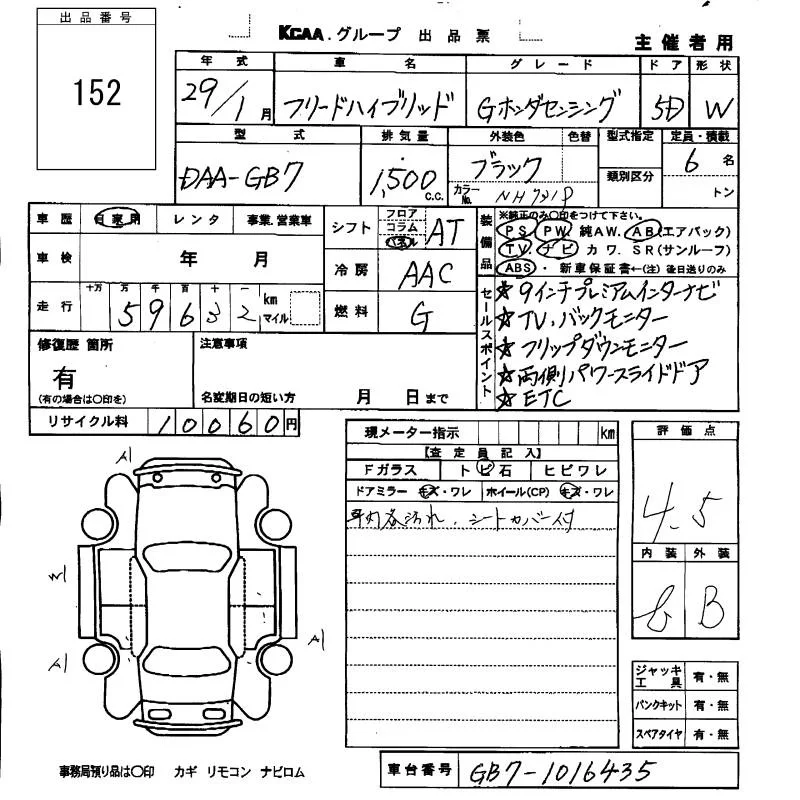 出品番号
152
KCAA.グループ 出品票
主催者用
年式 車名 グレード ドア 形状
29/1月 フリードハイブリッド Gホンダセンシング 5D W
型式 排気量 外装色 色替 型式指定 定員・積載
DAA-GB7 1,500 c.c. ブラック 類別区分 6名
カラーNo. NH731P トン
車歴 自家用 レンタ 事業.営業車
車検 年 月
走行 十万 万 千 百 十 一
59632 km マイル
シフト フロア コラム パネル AT
冷房 AAC
燃料 G
装備品
※純正のみ〇印をつけて下さい。
PS PW 純AW. AB(エアバック)
TV ナビ カワ. SR(サンルーフ)
ABS・新車保証書←(注)後日送りのみ
セールスポイント
☆9インチプレミアムインターナビ
☆TV、バックモニター
☆フリップダウンモニター
☆両側パワースライドドア
☆ETC
修復歴 箇所
有
(有の場合は〇印を)
注意事項
名変期日の短い方 月 日まで
リサイクル料 10060円
現メーター指示 km
【査定員記入】
Fガラス トビ石 ヒビワレ
ドアミラー キズ・ワレ ホイール(CP) キズ・ワレ
シートカバー付
評価点
4.5
内装 外装
b B
A1
A1
A1
ジャッキ工具 有・無
パンクキット 有・無
スペアタイヤ 有・無
事務局預り品は〇印 カギ リモコン ナビロム
車台番号 GB7-1016435